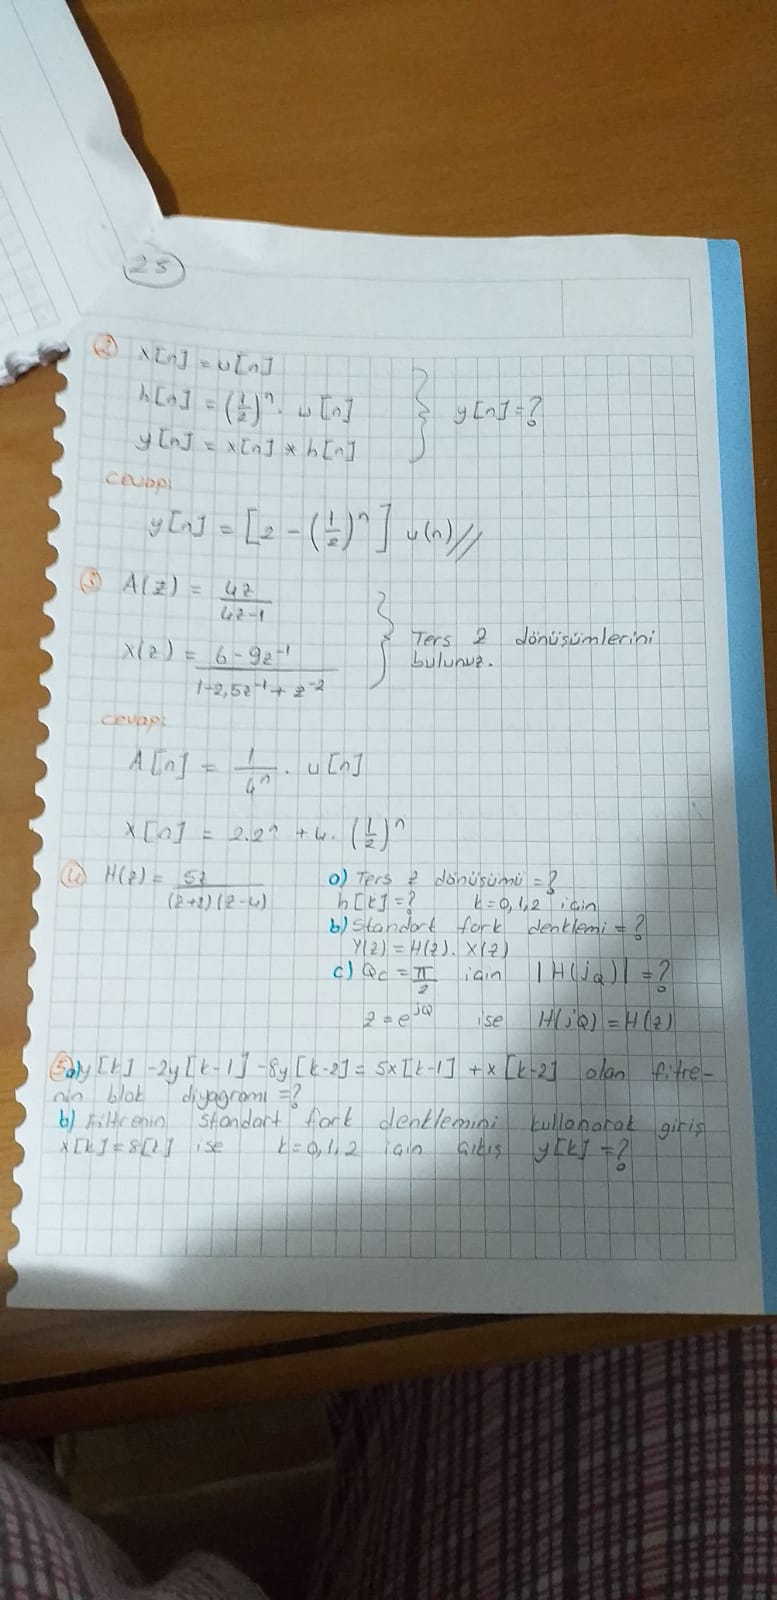 25
2) x[n] = u[n]
h[n] = (1/2)^n . u[n]
y[n] = x[n] * h[n]
} y[n] = ?
cevap:
y[n] = [2 - (1/2)^n] u(n)//
3) A(z) = 4z / (4z-1)
x(z) = (6 - 9z^-1) / (1-2,5z^-1 + z^-2)
} Ters z dönüşümlerini
bulunuz.
cevap:
A[n] = 1/4^n . u[n]
x[n] = 2.2^n + 4. (1/2)^n
4) H(z) = 5z / (z+2)(z-4)
a) Ters z dönüşümü = ?
h[k] = ? k=0,1,2 için
b) Standart fark denklemi = ?
Y(z) = H(z). X(z)
c) Qc = π/2 için |H(jQ)| = ?
z = e^jQ ise H(jQ) = H(z)
5) a) y[k] - 2y[k-1] - 8y[k-2] = 5x[k-1] + x[k-2] olan fitre-
nin blok diyagramı = ?
b) Filtrenin standart fark denklemini kullanarak giriş
x[k] = δ[k] ise k=0,1,2 için çıkış y[k] = ?